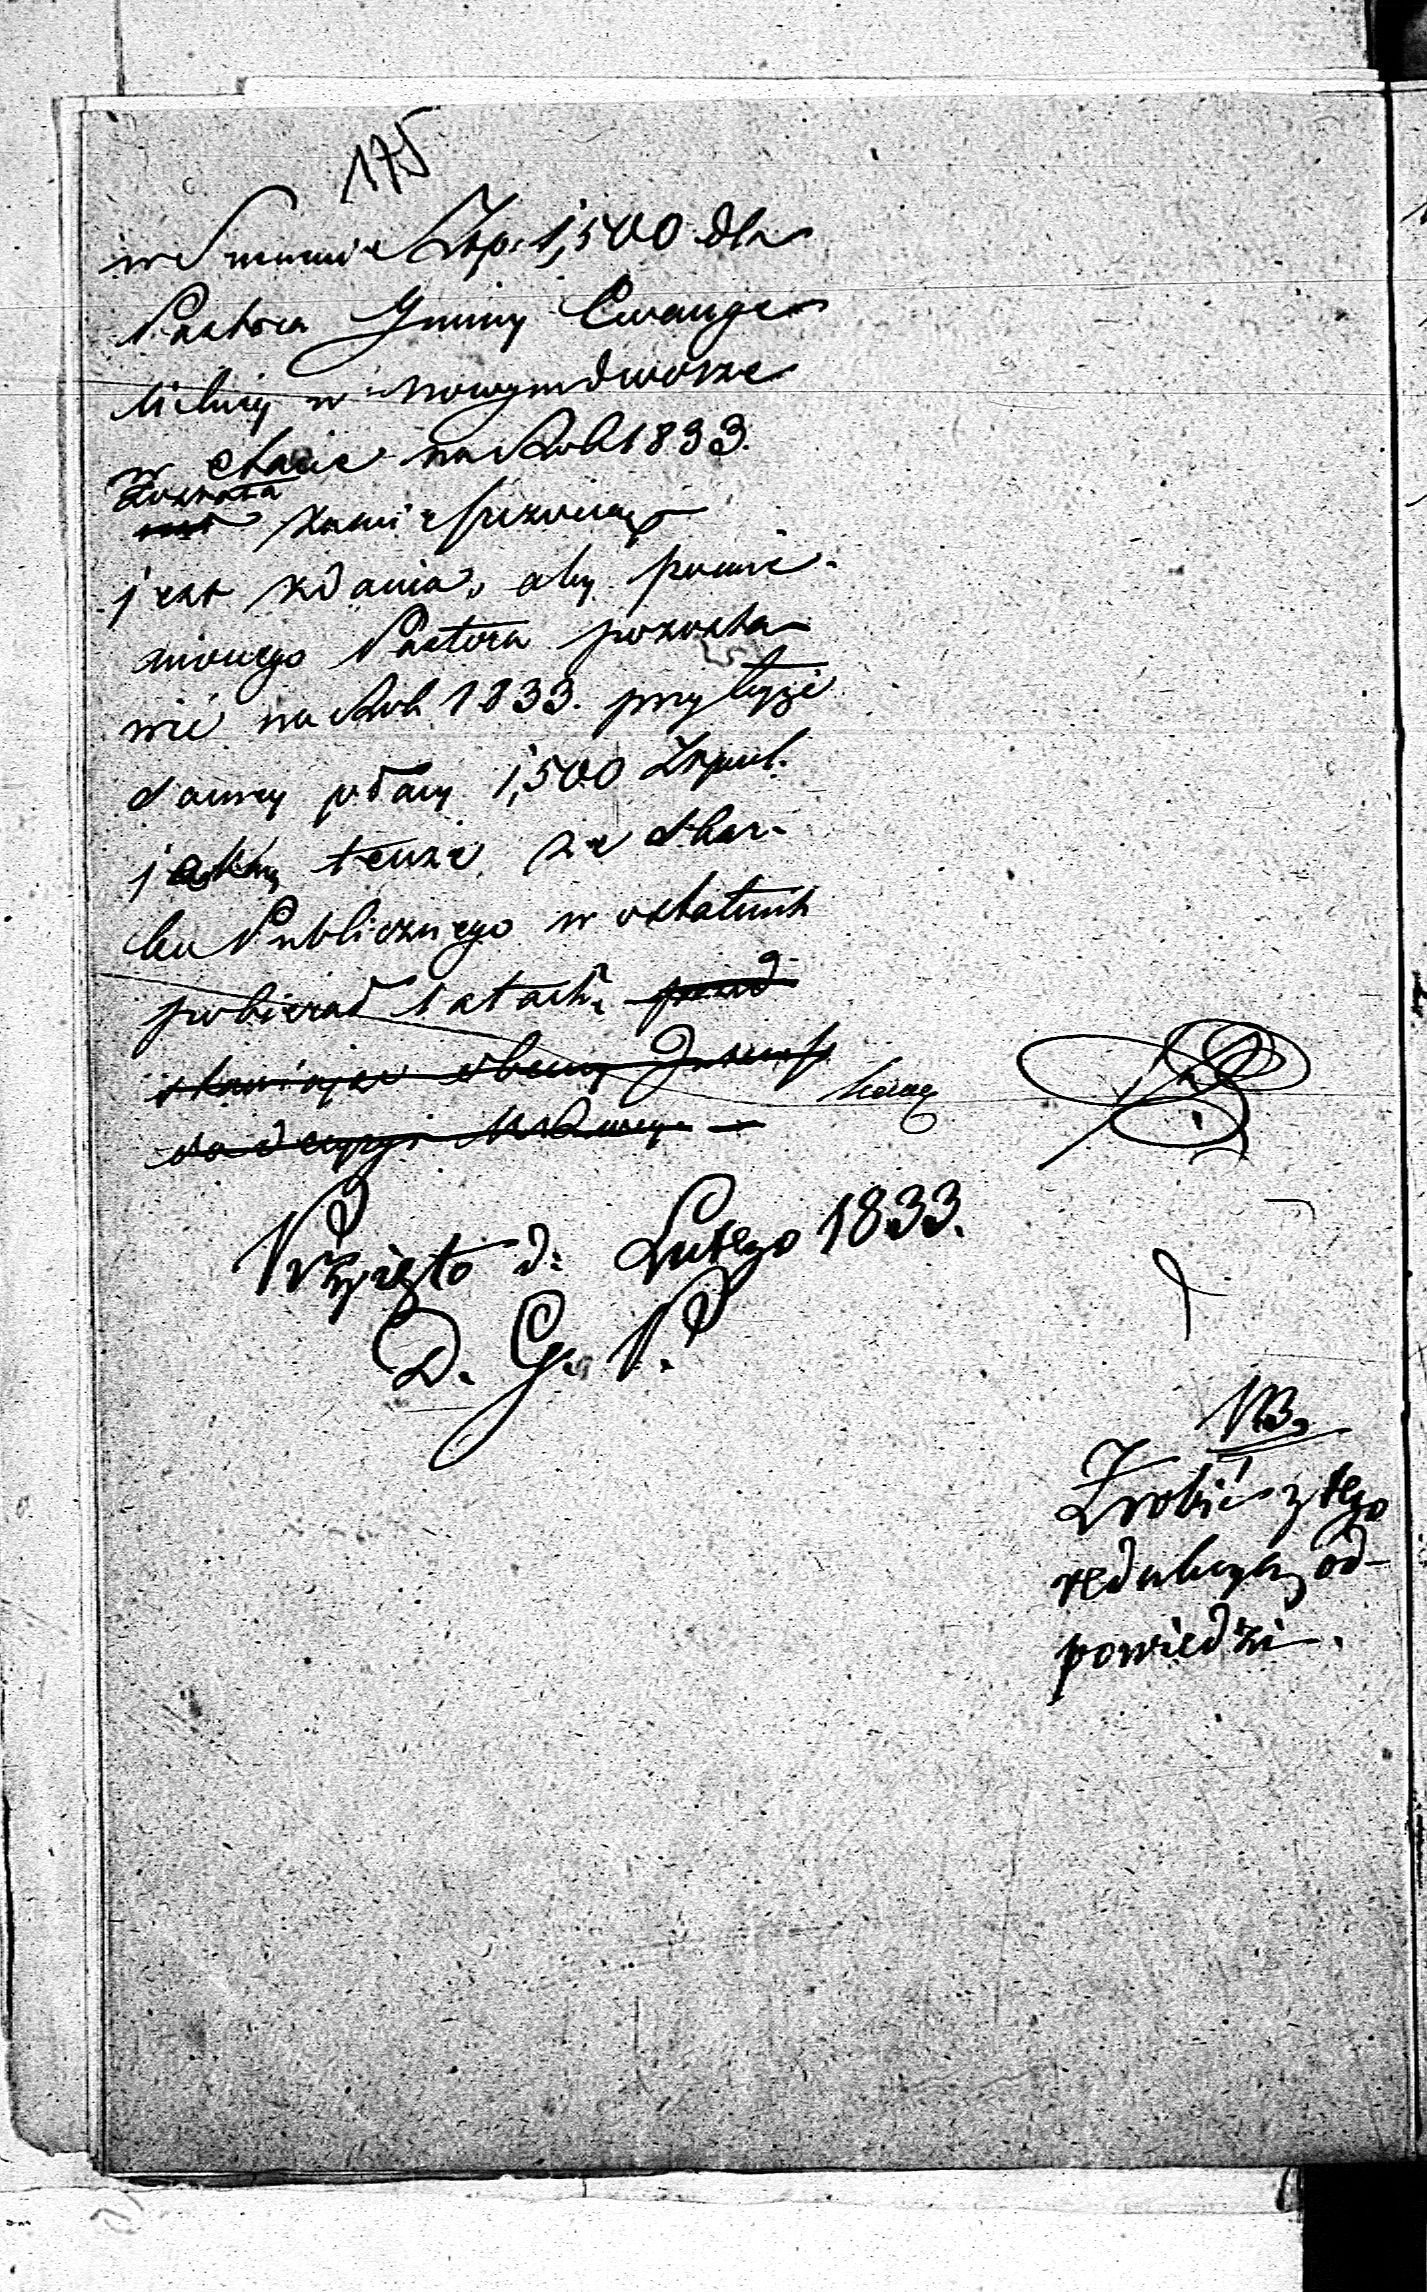 175
w Summie Złp. 1,500 dla
Pastora Gminy Ewange
lickiej w Nowymdworze
w etacie na Rok 1833.
została
zamieszczoną
jest zdania, aby pomie-
nionego Pastora pozosta
wić na Rok 1833. przy tejże
samey płacy 1,500 Złpol.
jaką tenże ze Skar-
bu Publicznego w ostatnich
pobierał latach,
stawiając obecny
do decyzyi
Przyięto d: Lutego 1833.
D. G. P.
NB.
Zrobić z tego
redakcyą od-
powiedzi.